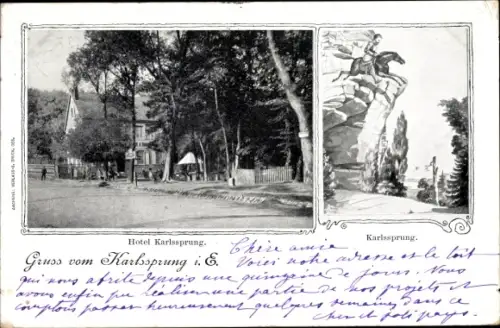 Hotel Karlssprung.
Karlssprung.
Gruss vom Karlssprung i. E.
Chère amie
Voici notre adresse et le toit
qui nous abrite depuis une quinzaine de jours. Vous
avons enfin pu réaliser une partie de nos projets et
comptons passer heureusement quelques semaines dans ce
cher et joli pays.